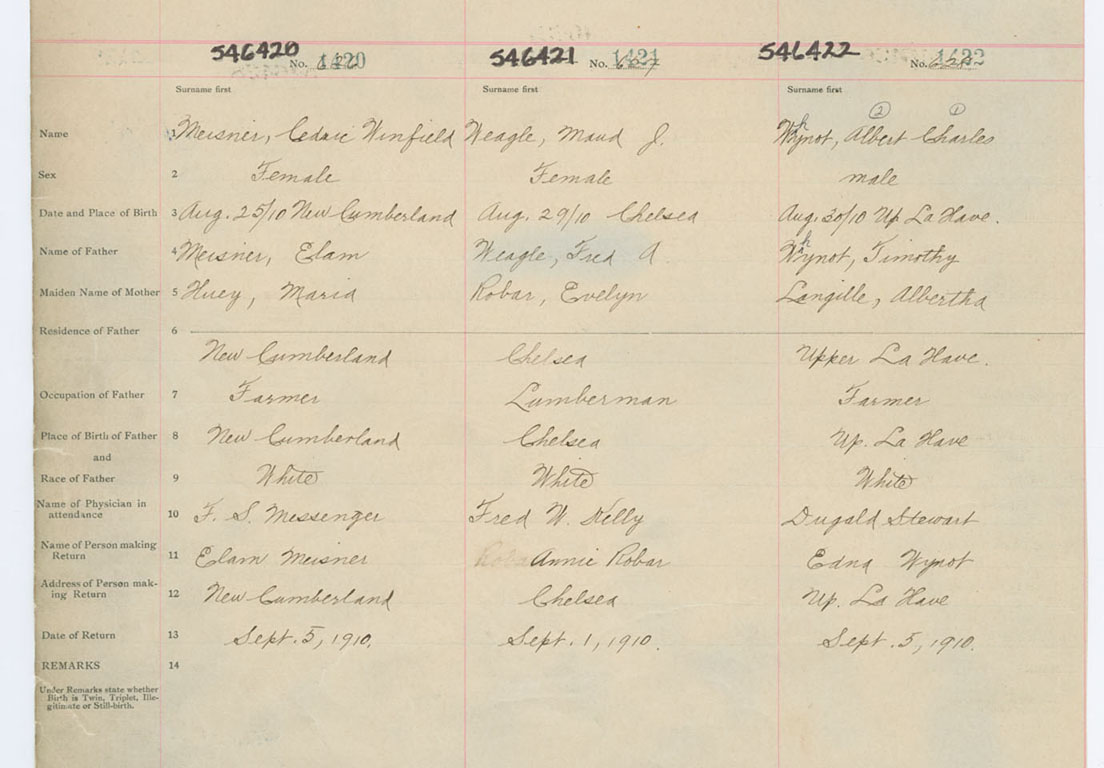 546420 No. 1420 546421 No. 1421 546422 No. 1422
Surname first Surname first Surname first
② ①
Name 1 Meisner, Cedric Winfield Weagle, Maud J. Whynot, Albert Charles
Sex 2 Female Female male
Date and Place of Birth 3 Aug. 25/10 New Cumberland Aug. 29/10 Chelsea Aug. 30/10 Up. La Have.
Name of Father 4 Meisner, Elam Weagle, Fred A. Whynot, Timothy
Maiden Name of Mother 5 Huey, Maria Robar, Evelyn Langille, Albertha
Residence of Father 6
New Cumberland Chelsea Upper La Have.
Occupation of Father 7 Farmer Lumberman Farmer
Place of Birth of Father 8 New Cumberland Chelsea Up. La Have
and
Race of Father 9 White White White
Name of Physician in
attendance 10 F. S. Messenger Fred W. Kelly Dugald Stewart
Name of Person making
Return 11 Elam Meisner Annie Robar Edna Wynot
Address of Person mak-
ing Return 12 New Cumberland Chelsea Up. La Have
Date of Return 13 Sept. 5, 1910. Sept. 1, 1910. Sept. 5, 1910.
REMARKS 14
Under Remarks state whether
Birth is Twin, Triplet, Ille-
gitimate or Still-birth.